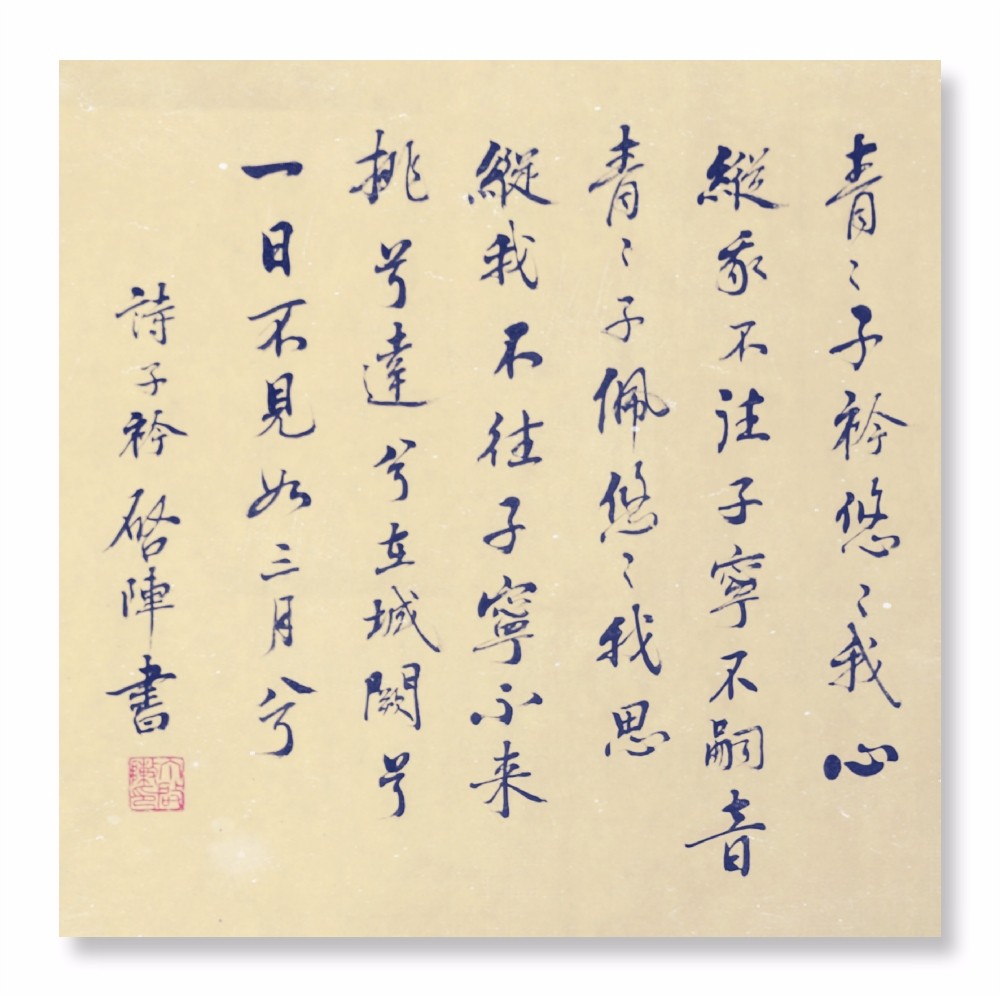 青〻子衿悠〻我心
縱我不往子寧不嗣音
青〻子佩悠〻我思
縱我不往子寧不来
挑兮達兮在城闕兮
一日不見如三月兮
詩子衿 啓陣書